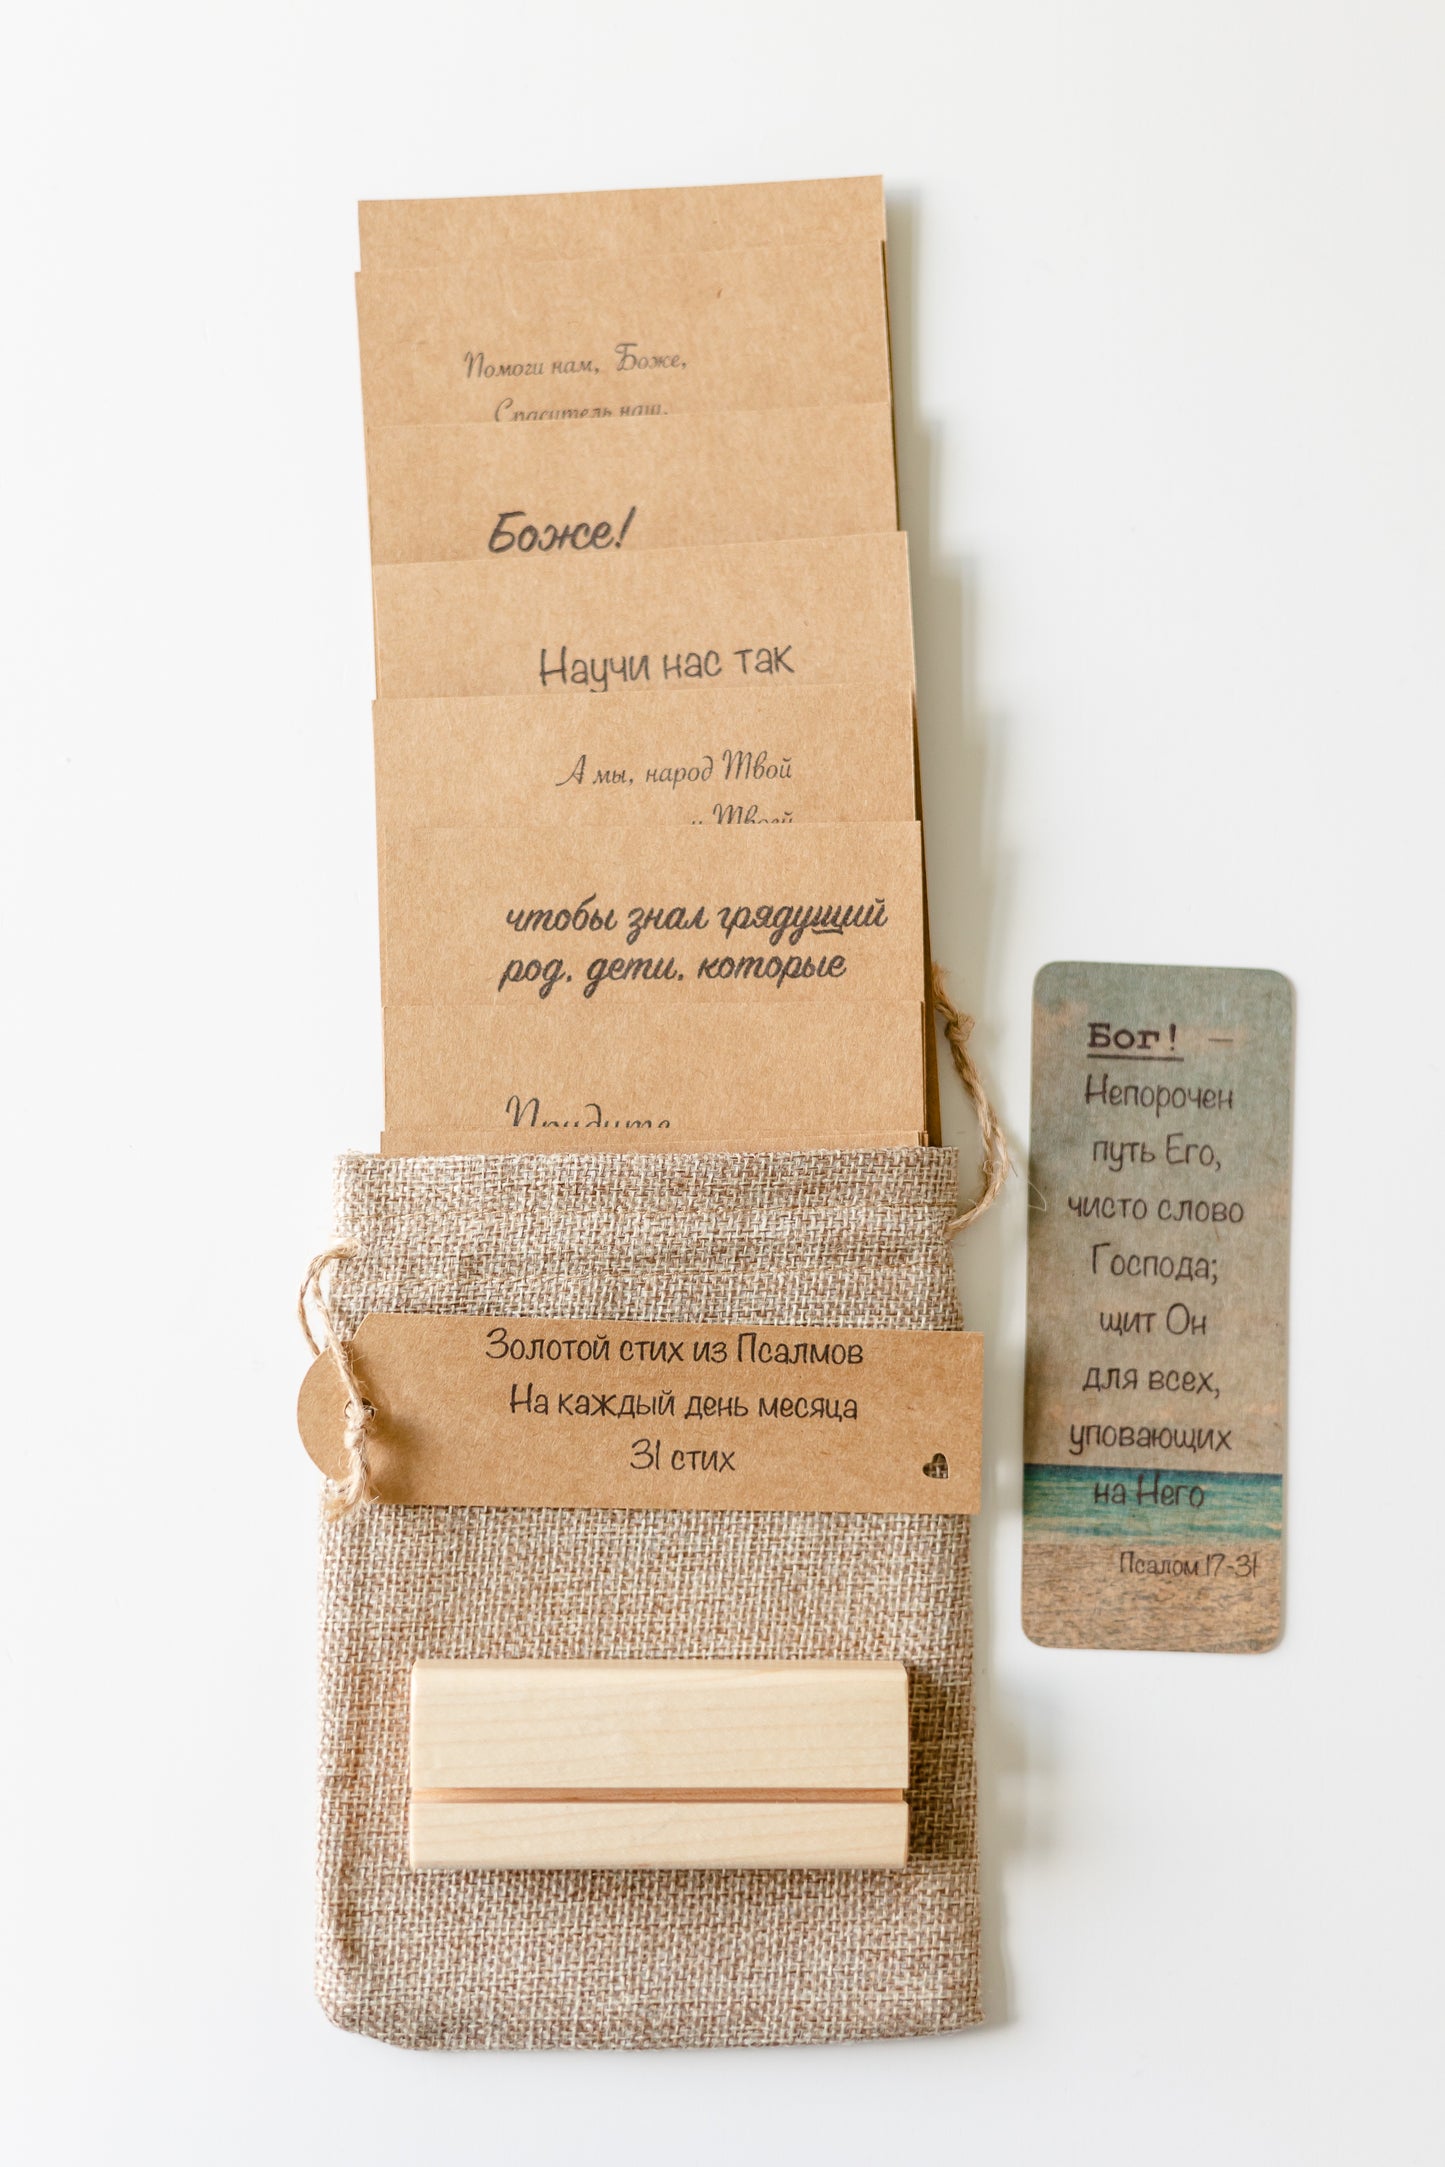 Помоги нам, Боже,
Спаситель наш,
Боже!
Научи нас так
А мы, народ Твой
и Твоей
чтобы знал грядущий
род, дети, которые
Придите
Золотой стих из Псалмов
На каждый день месяца
31 стих
Бог! –
Непорочен
путь Его,
чисто слово
Господа;
щит Он
для всех,
уповающих
на Него
Псалом 17-31